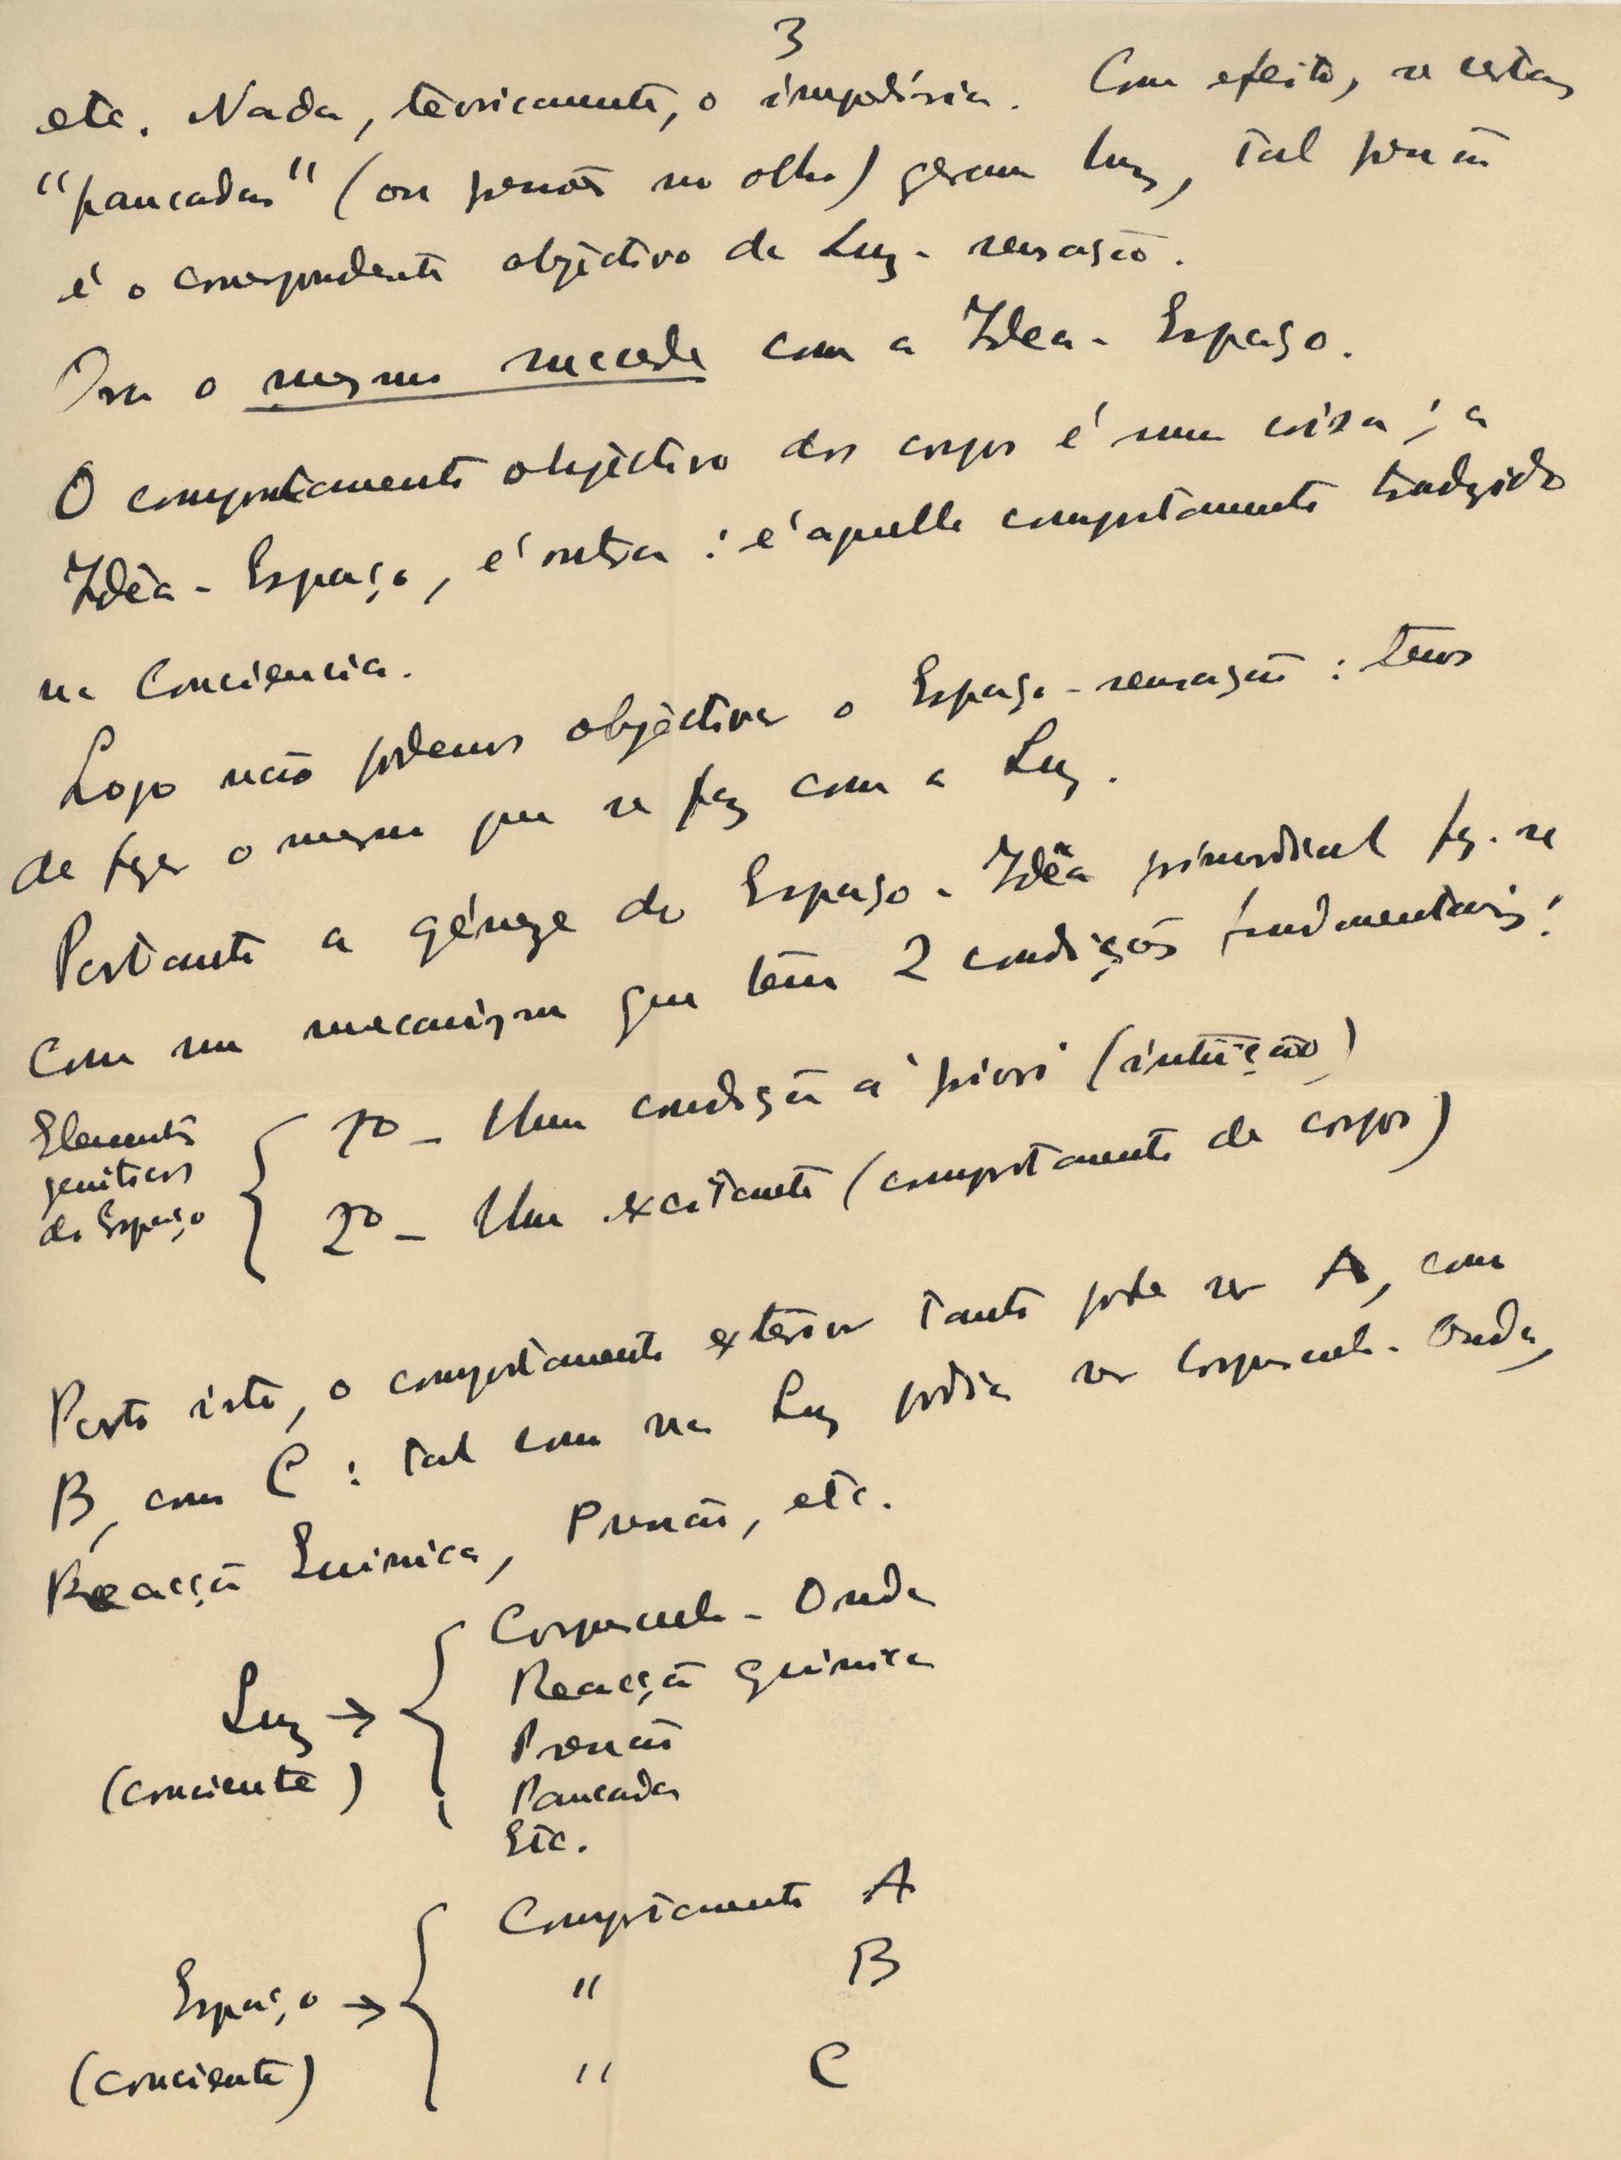 3
etc. Nada, teòricamente, o impediria. Com efeito, se estas
"pancadas" (ou pressões no olho) geram luz, tal pressão
é o correspondente objectivo da Luz-sensação.
Ora o mesmo sucede com a Idea-Espaço.
O comportamento objèctivo dos corpos é uma coisa; a
Idèa-Espaço, é outra: é aquelle comportamento traduzido
na Conciencia.
Logo não podemos objèctivar o Espaço-sensação: temos
de fazer o mesmo que se faz com a Luz.
Portanto a géneze do Espaço-Idèa primordial faz-se
Com um mecanizmo que tem 2 condições fundamentais:
Elementos
genéticos
do Espaço
1º - Uma condição a priori (intuição)
2º - Um excitante (comportamento de corpos)
Posto isto, o comportamento exterior tanto pode ser A, como
B, como C: tal como na Luz podia ser Corpusculo-Onda,
Reacção Quimica, Pressão, etc.
Luz →
(conciente)
Corpusculo-Onda
Reacção Quimica
Pressão
Pancadas
Etc.
Espaço →
(conciente)
Comportamento A
" B
" C